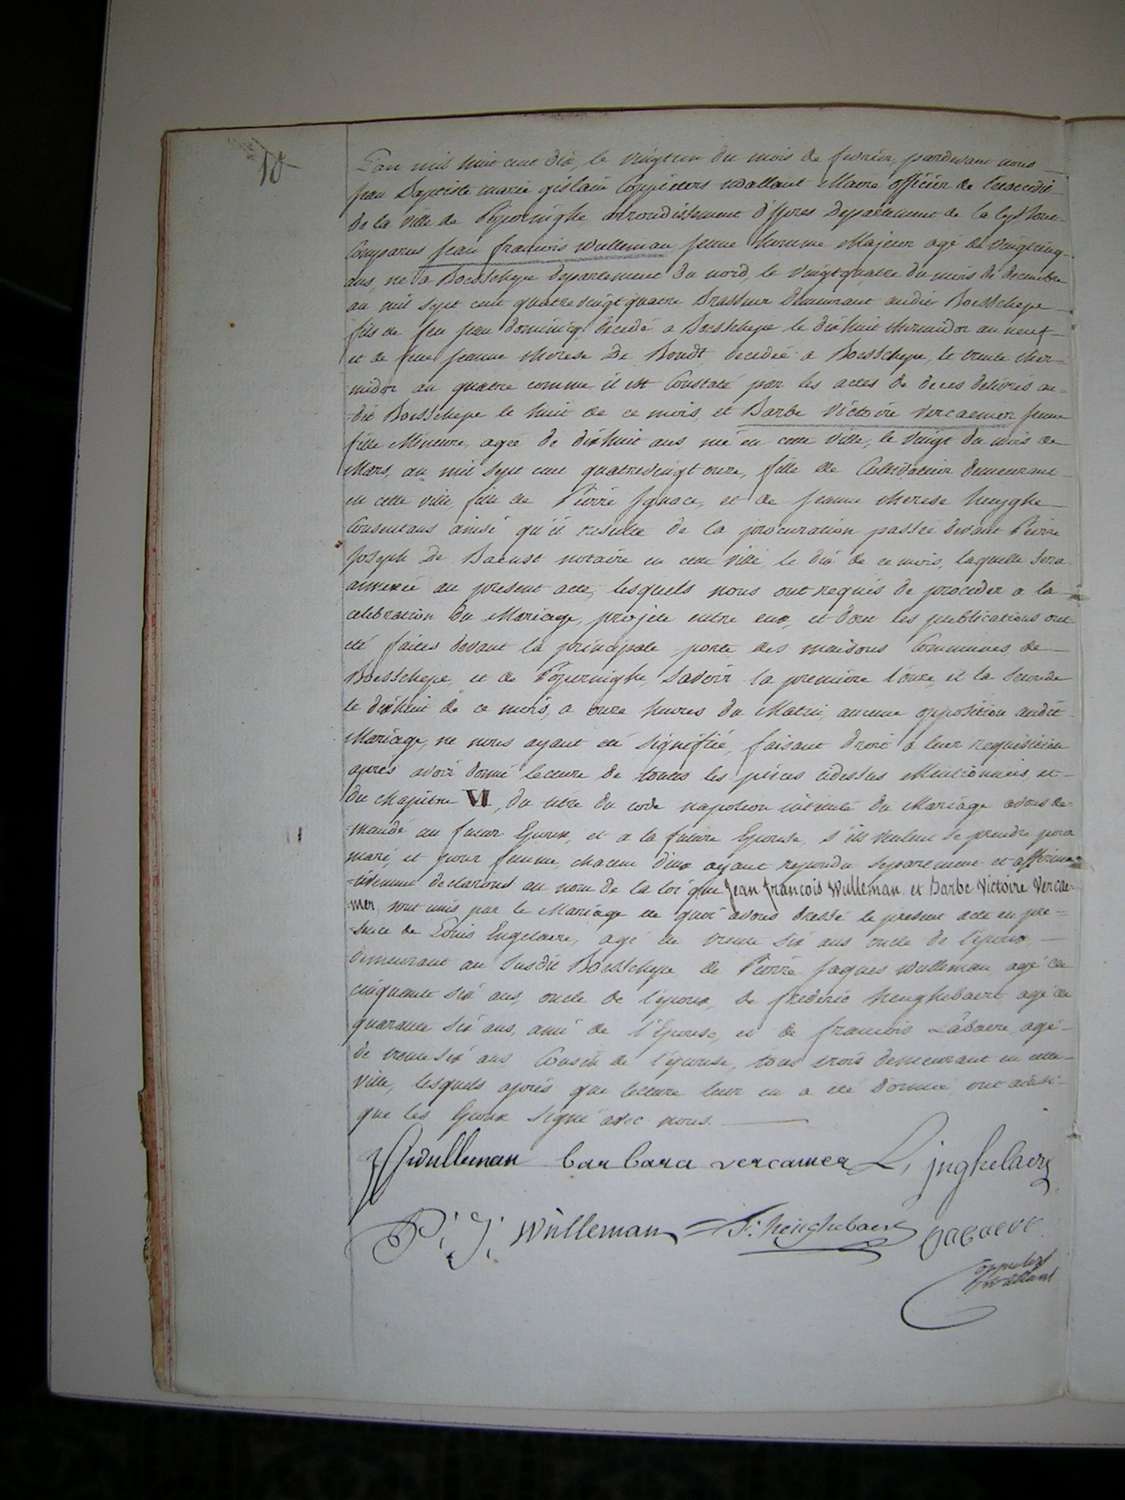 10
L'an mil huit cent dix, le vingt un du mois de fevrier, pardevant nous
jean Baptiste marie gislain Coppieters wallant Maire officier de l'etat civil
de la ville de Poperinghe, arrondissement d'Ypres departement de la Lys sont
Comparus Jean francois Wulleman jeune homme Majeur agé de vingt cinq
ans, né a Boesschepe departement du nord, le vingt quatre du mois de decembre
an mil sept cent quatre vingt quatre Brasseur demeurant audit Boesschepe
fils de feu jean dominicq decedé a Boesschepe le dixhuit thermidor an neuf
et de feue Jeanne therese De Boudt decedée a Boesschepe, le trente ther-
midor an quatre comme il est Constaté par les actes de deces delivrés au-
dit Boesschepe le huit de ce mois, et Barbe Victoire Vercaemer jeune
fille Mineure, agée de dixhuit ans née en cette ville, le vingt du mois de
Mars, an mil sept cent quatrevingt onze, fille de Cultivateur demeurant
en cette ville fille de Pierre Ignace, et de Jeanne therese
Consentans ainsi qu'il resulte de la procuration passée devant Pierre
Joseph De notaire en cette ville le dix de ce mois, laquelle sera
annexée au present acte, lesquels nous ont requis de proceder a la
celebration du Mariage, projeté entre eux, et dont les publications ont
été faites devant la principale porte des maisons Communes de
Boesschepe, et de Poperinghe, Savoir la premiere l'onze, et la seconde
le dixhuit de ce mois, a onze heures du Matin, aucune opposition audit
Mariage, ne nous ayant été signifiée, faisant droit a leur requisition
apres avoir donné lecture de toutes les pieces cidessus Mentionnees, et
du chapitre VI, du titre du code napoleon intitulé du Mariage avons de-
mandé au futur Epoux, et a la future Epouse, s'ils veulent se prendre pour
mari, et pour femme, chacun d'eux ayant repondu separement et affirma-
tivement declarons au nom de la loi que Jean francois Wulleman et Barbe Victoire Vercae-
mer, sont unis par le Mariage de quoi avons dressé le present acte en pre-
sence de Louis Engelaere, agé de trente six ans oncle de l'epoux,
demeurant au susdit Boesschepe de Pierre Jaques Wulleman agé de
cinquante six ans, oncle de l'epoux, de frederic henghebaert agé de
quarante six ans, ami de l'Epouse, et de francois agé
de trente six ans Cousin de l'epouse, tous trois demeurant en cette
ville, lesquels après que lecture leur en a été donnée ont ainsi
que les Epoux signé avec nous.
JfWulleman barbara vercamer L, jnghelaere
P: J: Wulleman F: henghebaert
Coppieters
wallant